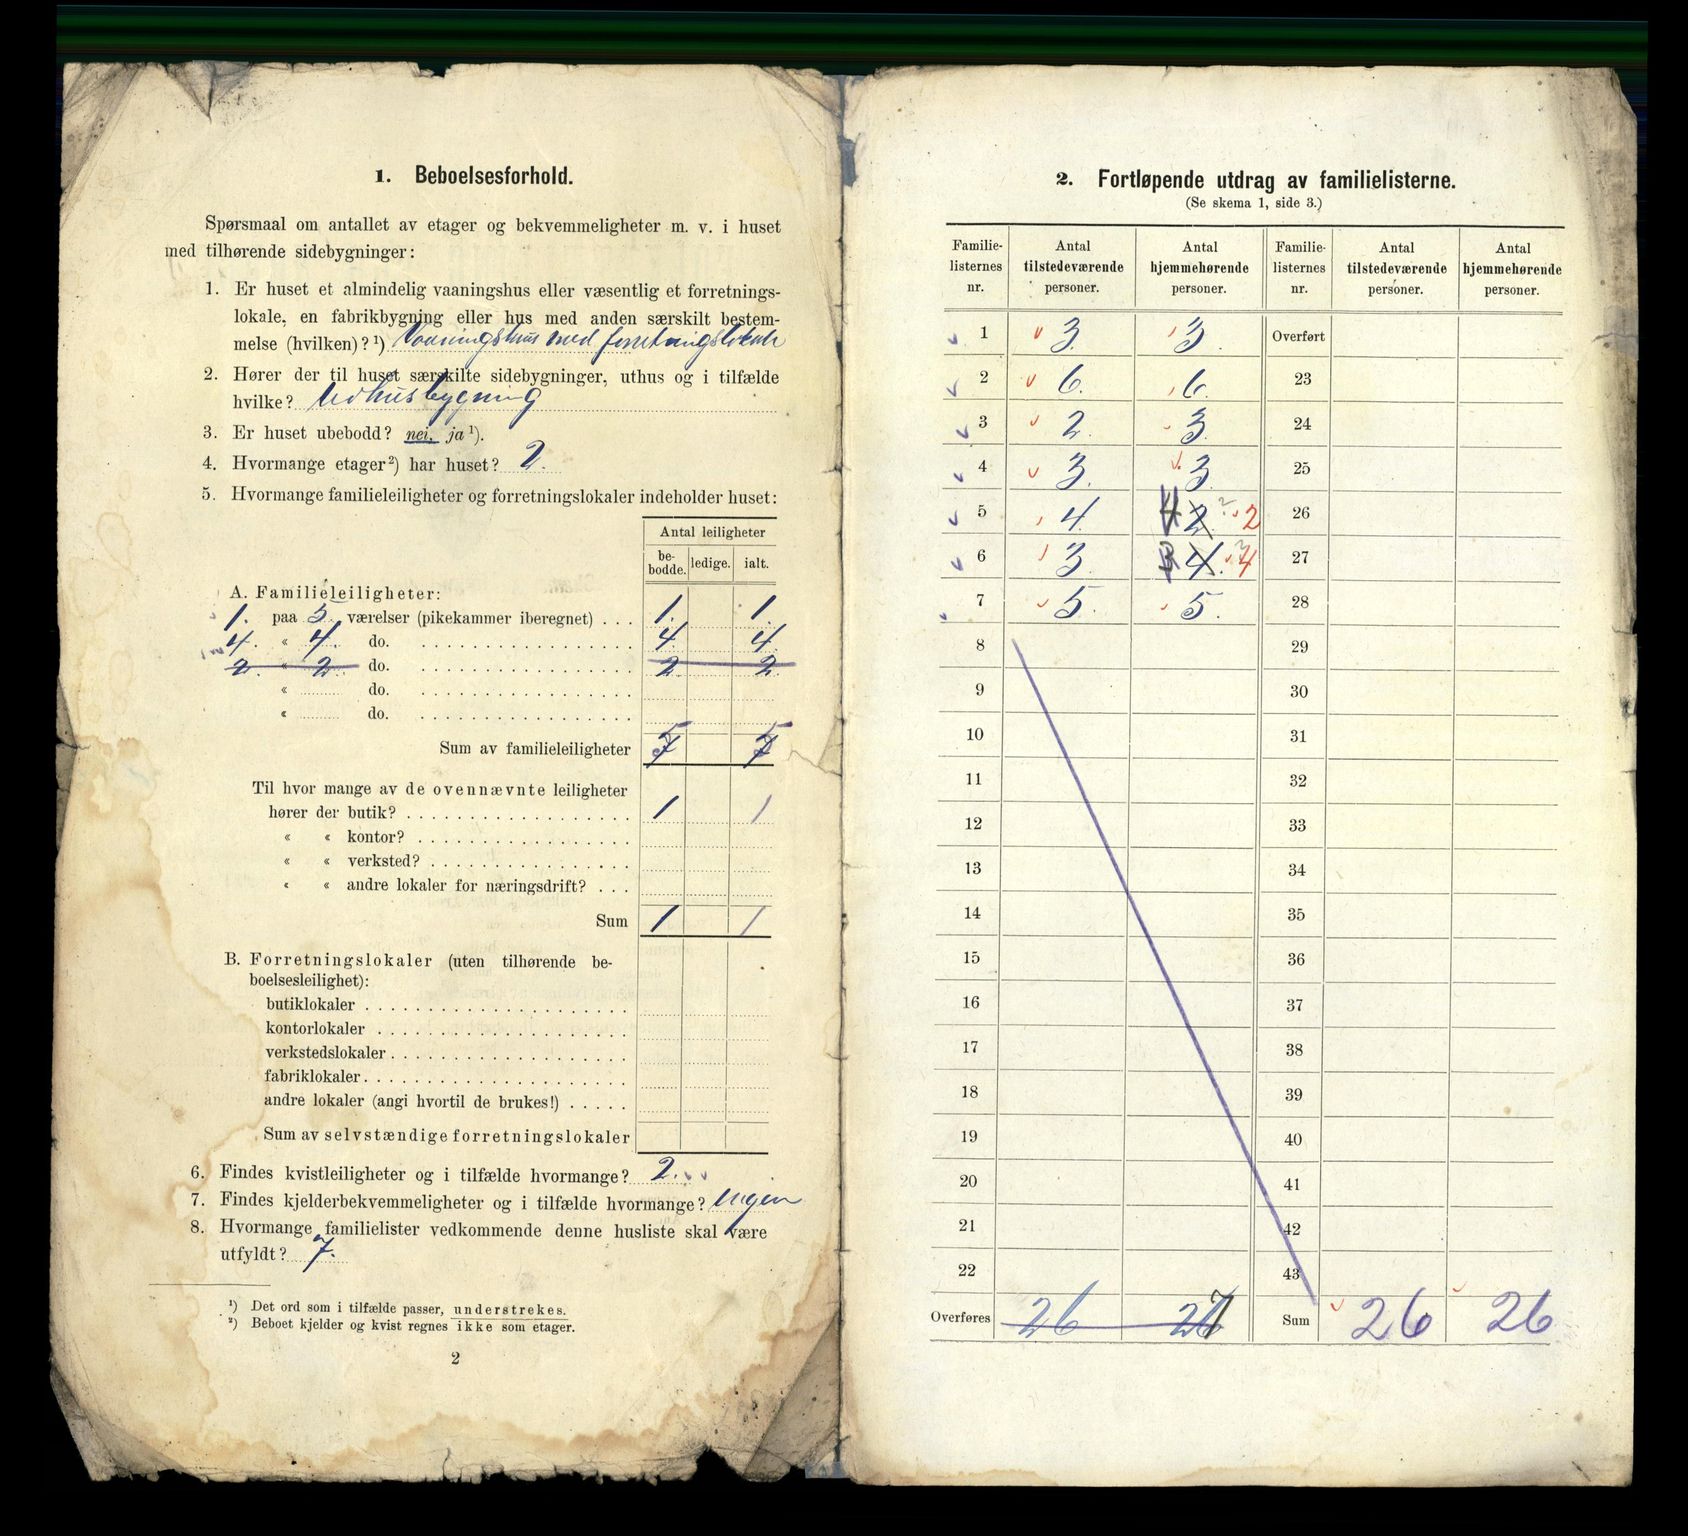 1. Beboelsesforhold.
Spørsmaal om antallet av etager og bekvemmeligheter m. v. i huset
med tilhørende sidebygninger:
1. Er huset et almindelig vaaningshus eller væsentlig et forretnings-
lokale, en fabrikbygning eller hus med anden særskilt bestem-
melse (hvilken)? ¹) Vaaningshus med forretningslokale
2. Hører der til huset særskilte sidebygninger, uthus og i tilfælde
hvilke? Udhusbygning
3. Er huset ubebodd? nei, ja ¹).
4. Hvormange etager ²) har huset? 2.
5. Hvormange familieleiligheter og forretningslokaler indeholder huset:
Antal leiligheter
be-bodde. ledige. ialt.
A. Familieleiligheter:
1. paa 5 værelser (pikekammer iberegnet) . . . 1. 1.
4. « 4. do. 4 4
2. « 2. do. 2. 2.
« do.
« do.
5 5
Sum av familieleiligheter 7 7
Til hvor mange av de ovennævnte leiligheter
hører der butik? 1 1
« « kontor?
« « verksted?
« « andre lokaler for næringsdrift? . . .
Sum 1 1
B. Forretningslokaler (uten tilhørende be-
boelsesleilighet):
butiklokaler
kontorlokaler
verkstedslokaler
fabriklokaler
andre lokaler (angi hvortil de brukes!)
Sum av selvstændige forretningslokaler
6. Findes kvistleiligheter og i tilfælde hvormange? 2.
7. Findes kjelderbekvemmeligheter og i tilfælde hvormange? Ingen
8. Hvormange familielister vedkommende denne husliste skal være
utfyldt? 7.
¹) Det ord som i tilfælde passer, understrekes.
²) Beboet kjelder og kvist regnes ikke som etager.
2
2. Fortløpende utdrag av familielisterne.
(Se skema 1, side 3.)
Familie-listernes nr. Antal tilstedeværende personer. Antal hjemmehørende personer. Familie-listernes nr. Antal tilstedeværende personer. Antal hjemmehørende personer.
1 3. 3. Overført
2 6. 6. 23
3 2. 3. 24
4 3. 3. 25
5 4. 4 2. ? 2 26
6 3. 3 4. 3 4 27
7 5. 5. 28
8 29
9 30
10 31
11 32
12 33
13 34
14 35
15 36
16 37
17 38
18 39
19 40
20 41
21 42
22 43
Overføres 26 267 Sum 26 26